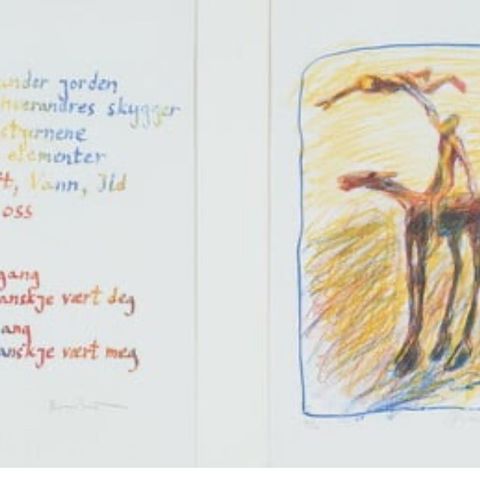 under jorden
hverandres skygger
stjernene
elementer
t, Vann, Ild
oss
gang
anskje vært deg
ang
anskje vært meg